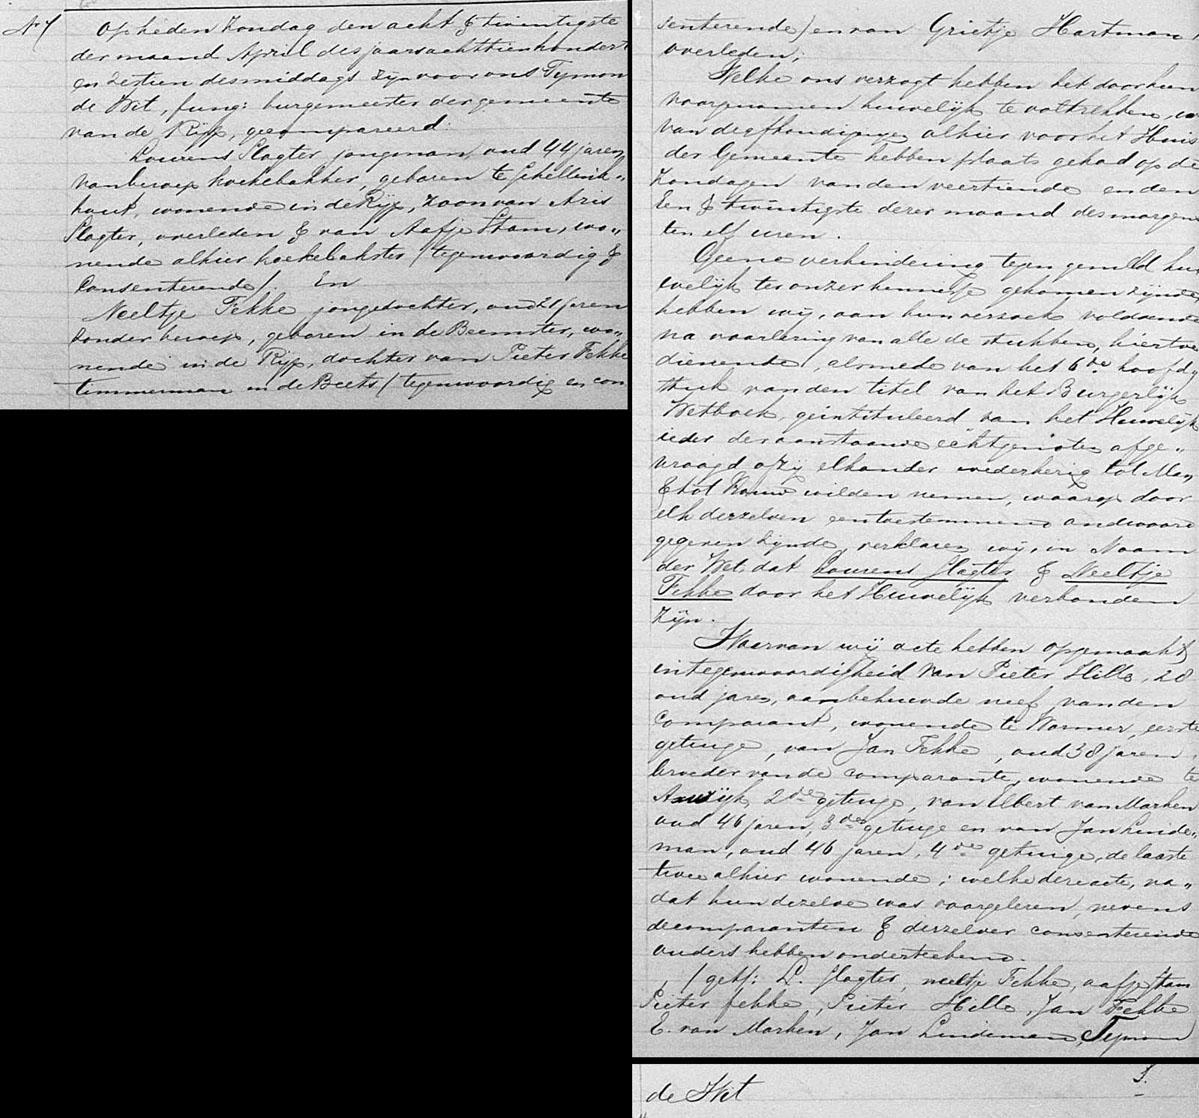 No 7
Op heden Zondag den acht & twintigste
der maand April des jaars achttienhondert
en zestien des middags zijn voor ons Tymon
de Wit, fung: burgemeester der gemeente
van de Rijp, gecompareerd.
Lourens Slagter jongman, oud 44 jaren,
van beroep koekebakker, geboren te Schellink„
hout, wonende in de Rijp, Zoon van Aris
Slagter, overleden & van Aafje Stam, wo„
nende alhier koekebakster (tegenwoordig &
Consenterende). En
Neeltje Fekke jongedochter, oud 21 jaren
zonder beroep, geboren in de Beemster, wo„
nende in de Rijp, dochter van Pieter Fekke
timmerman in de Beets (tegenwoordig en con
senterende) en van Grietje Hartman
overleden;
Welke ons verzogt hebben het door hun
voorgenomen huwelijk te voltrekken,
van de afkondiging alhier voor het Huis
der Gemeente hebben plaats gehad op de
Zondagen van den veertiende en den
ten & twintigste dezer maand des morgen
ten elf uren.
Geene verhindering tegen gemeld hu
welijk ter onzer kennisse gekomen zijnde
hebben wij, aan hun verzoek voldoende
na voorlezing van alle de stukken, hiertoe
dienende, alsmede van het 6de hoofd
stuk van den titel van het Burgerlijk
Wetboek, geintituleerd van het Huwelijk
ieder der aanstaande echtgenoten afge„
vraagd of zij elkander wederkerig tot Man
& tot Vrouw wilden nemen, waarop door
elk derzelven een toestemmend andwoord
gegeven zijnde, verklaren wij, in Naam
der Wet, dat Lourens Slagter & Neeltje
Fekke door het Huwelijk verbonden
zijn.
Hiervan wij acte hebben opgemaakt
in tegenwoordigheid van Pieter Hille, 28
oud jaren, aanbehuwde neef van den
Comparant, wonende te Wormer, eerste
getuige, van Jan Fekke, oud 38 jaren,
broeder van de comparante, wonende te
2de getuige, van Elbert van Marken
oud 46 jaren, 3de getuige en van Jan Linde„
man, oud 46 jaren, 4de getuige, de laaste
twee alhier wonende; welke deze acte, na„
dat hun dezelve was voorgelezen, nevens
de comparanten & derzelver consenterende
ouders hebben onderteekend.
(get/: L. Slagter, neeltje Fekke, aafje Stam
Pieter fekke, Pieter Hille, Jan Fekke
E. van Marken, Jan Lindeman, Tymon
de Wit